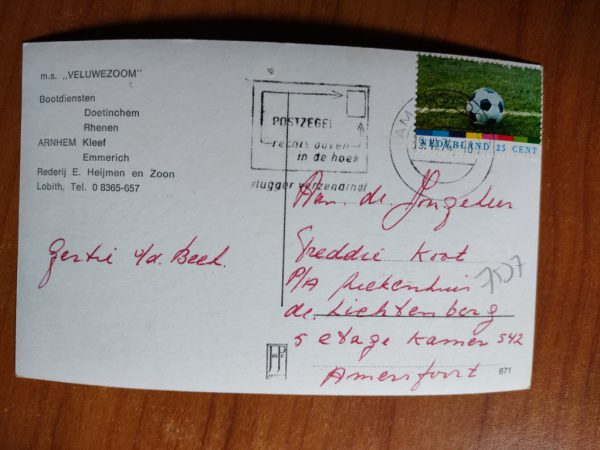 m.s. „VELUWEZOOM"
Bootdiensten
Doetinchem
Rhenen
ARNHEM Kleef
Emmerich
Rederij E. Heijmen en Zoon
Lobith, Tel. 0 8365-657
Gertie v/d. Beek.
POSTZEGEL
rechts boven
in de hoek
vlugger verzending
AM
NEDERLAND 25 CENT
Aan. de Jongeheer
Freddie Koot
P/A Ziekenhuis
de Lichtenberg
5 etage Kamer 542
Amersfoort
7507
671